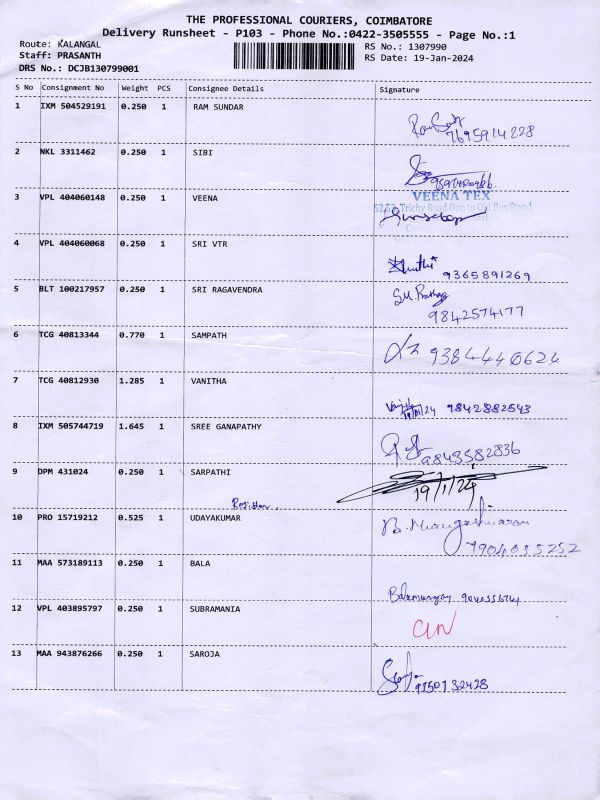 THE PROFESSIONAL COURIERS, COIMBATORE
Delivery Runsheet - P103 - Phone No.:0422-3505555 - Page No.:1
Route: KALANGAL
RS No.: 1307990
Staff: PRASANTH
RS Date: 19-Jan-2024
DRS No.: DCJB130799001
S No Consignment No Weight PCS Consignee Details Signature
1 IXM 504529191 0.250 1 RAM SUNDAR
7695914228
2 NKL 3311462 0.250 1 SIBI
3 VPL 404060148 0.250 1 VEENA
VEENA TEX
52,53, Trichy Road Opp to Old Bus Stand,
4 VPL 404060068 0.250 1 SRI VTR
9365891269
5 BLT 100217957 0.250 1 SRI RAGAVENDRA
9842574177
6 TCG 40813344 0.770 1 SAMPATH
9384440624
7 TCG 40812930 1.285 1 VANITHA
19/01/24 9842882543
8 IXM 505744719 1.645 1 SREE GANAPATHY
9843582836
9 DPM 431024 0.250 1 SARPATHI
19/1/24
10 PRO 15719212 0.525 1 UDAYAKUMAR
7904035252
11 MAA 573189113 0.250 1 BALA
Balamurugan
12 VPL 403895797 0.250 1 SUBRAMANIA
13 MAA 943876266 0.250 1 SAROJA
9150132428